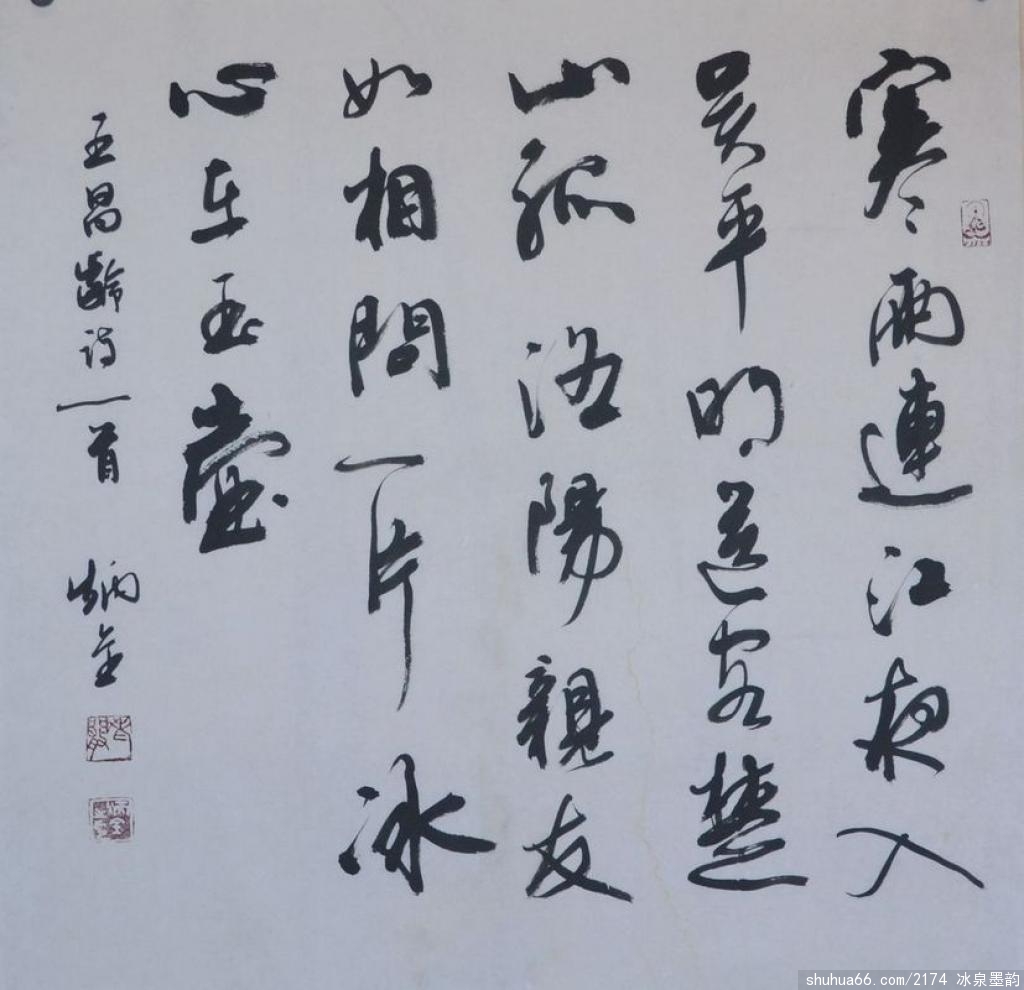 寒雨連江夜入
吴平明送客楚
山孤洛陽親友
如相問一片冰
心在玉壺
王昌齡诗一首 炳金
shuhua66.com/2174 冰泉墨韵